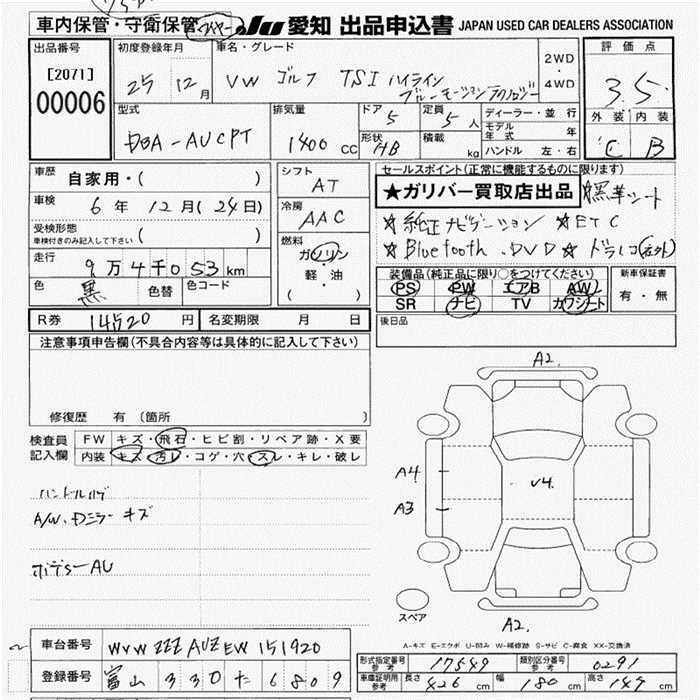 車内保管・守衛保管 JU 愛知 出品申込書 JAPAN USED CAR DEALERS ASSOCIATION
出品番号 初度登録年月 車名・グレード 2WD ・ 4WD 評価点
[2071] 25 12月 VW ゴルフ TSI ハイライン 3.5
00006 ブルーモーションテクノロジー
型式 排気量 ドア 定員 ディーラー・並行 外装 内装
DBA-AUCPT 1400 cc 5 5人 モデル年式 年 C B
形状 HB 積載 kg ハンドル 左・右
車歴 自家用・( ) シフト AT セールスポイント(正常に機能するものに限ります)
車検 6年 12月(24日) 冷房 AAC ★ガリバー買取店出品 ☆黒革シート
受検形態 ( ) ☆純正ナビゲーション ☆ETC
車検付きのみ記入して下さい 燃料 ☆Bluetooth.DVD☆ドラレコ(社外)
走行 9万4千053km ガソリン
色 黒 色替 色コード 軽・油 ( )
装備品(純正品に限り○をつけてください) 新車保証書
PS PW エアB AW 有・無
SR ナビ TV カワシート
R券 14520円 名変期限 月 日 後日品
注意事項申告欄(不具合内容等は具体的に記入して下さい)
修復歴 有 (箇所 )
検査員記入欄 FW キズ・飛石・ヒビ割・リペア跡・X要
内装 キズ・汚レ・コゲ・穴・スレ・キレ・破レ
ハンドルハゲ
A/W、ドアミラーキズ
ボデーAU
A2.
A4
A3
V4.
A2.
スペア
A-キズ E-エクボ U-凹み W-補修跡 S-サビ C-腐食 XX-交換済
車台番号 WVWZZZAUZEW151920
登録番号 富山 330 た 6809
形式指定番号 参考 17549 類別区分番号 参考 0291
車庫証明用 参考 長さ 426 cm 幅 180 cm 高さ 145 cm